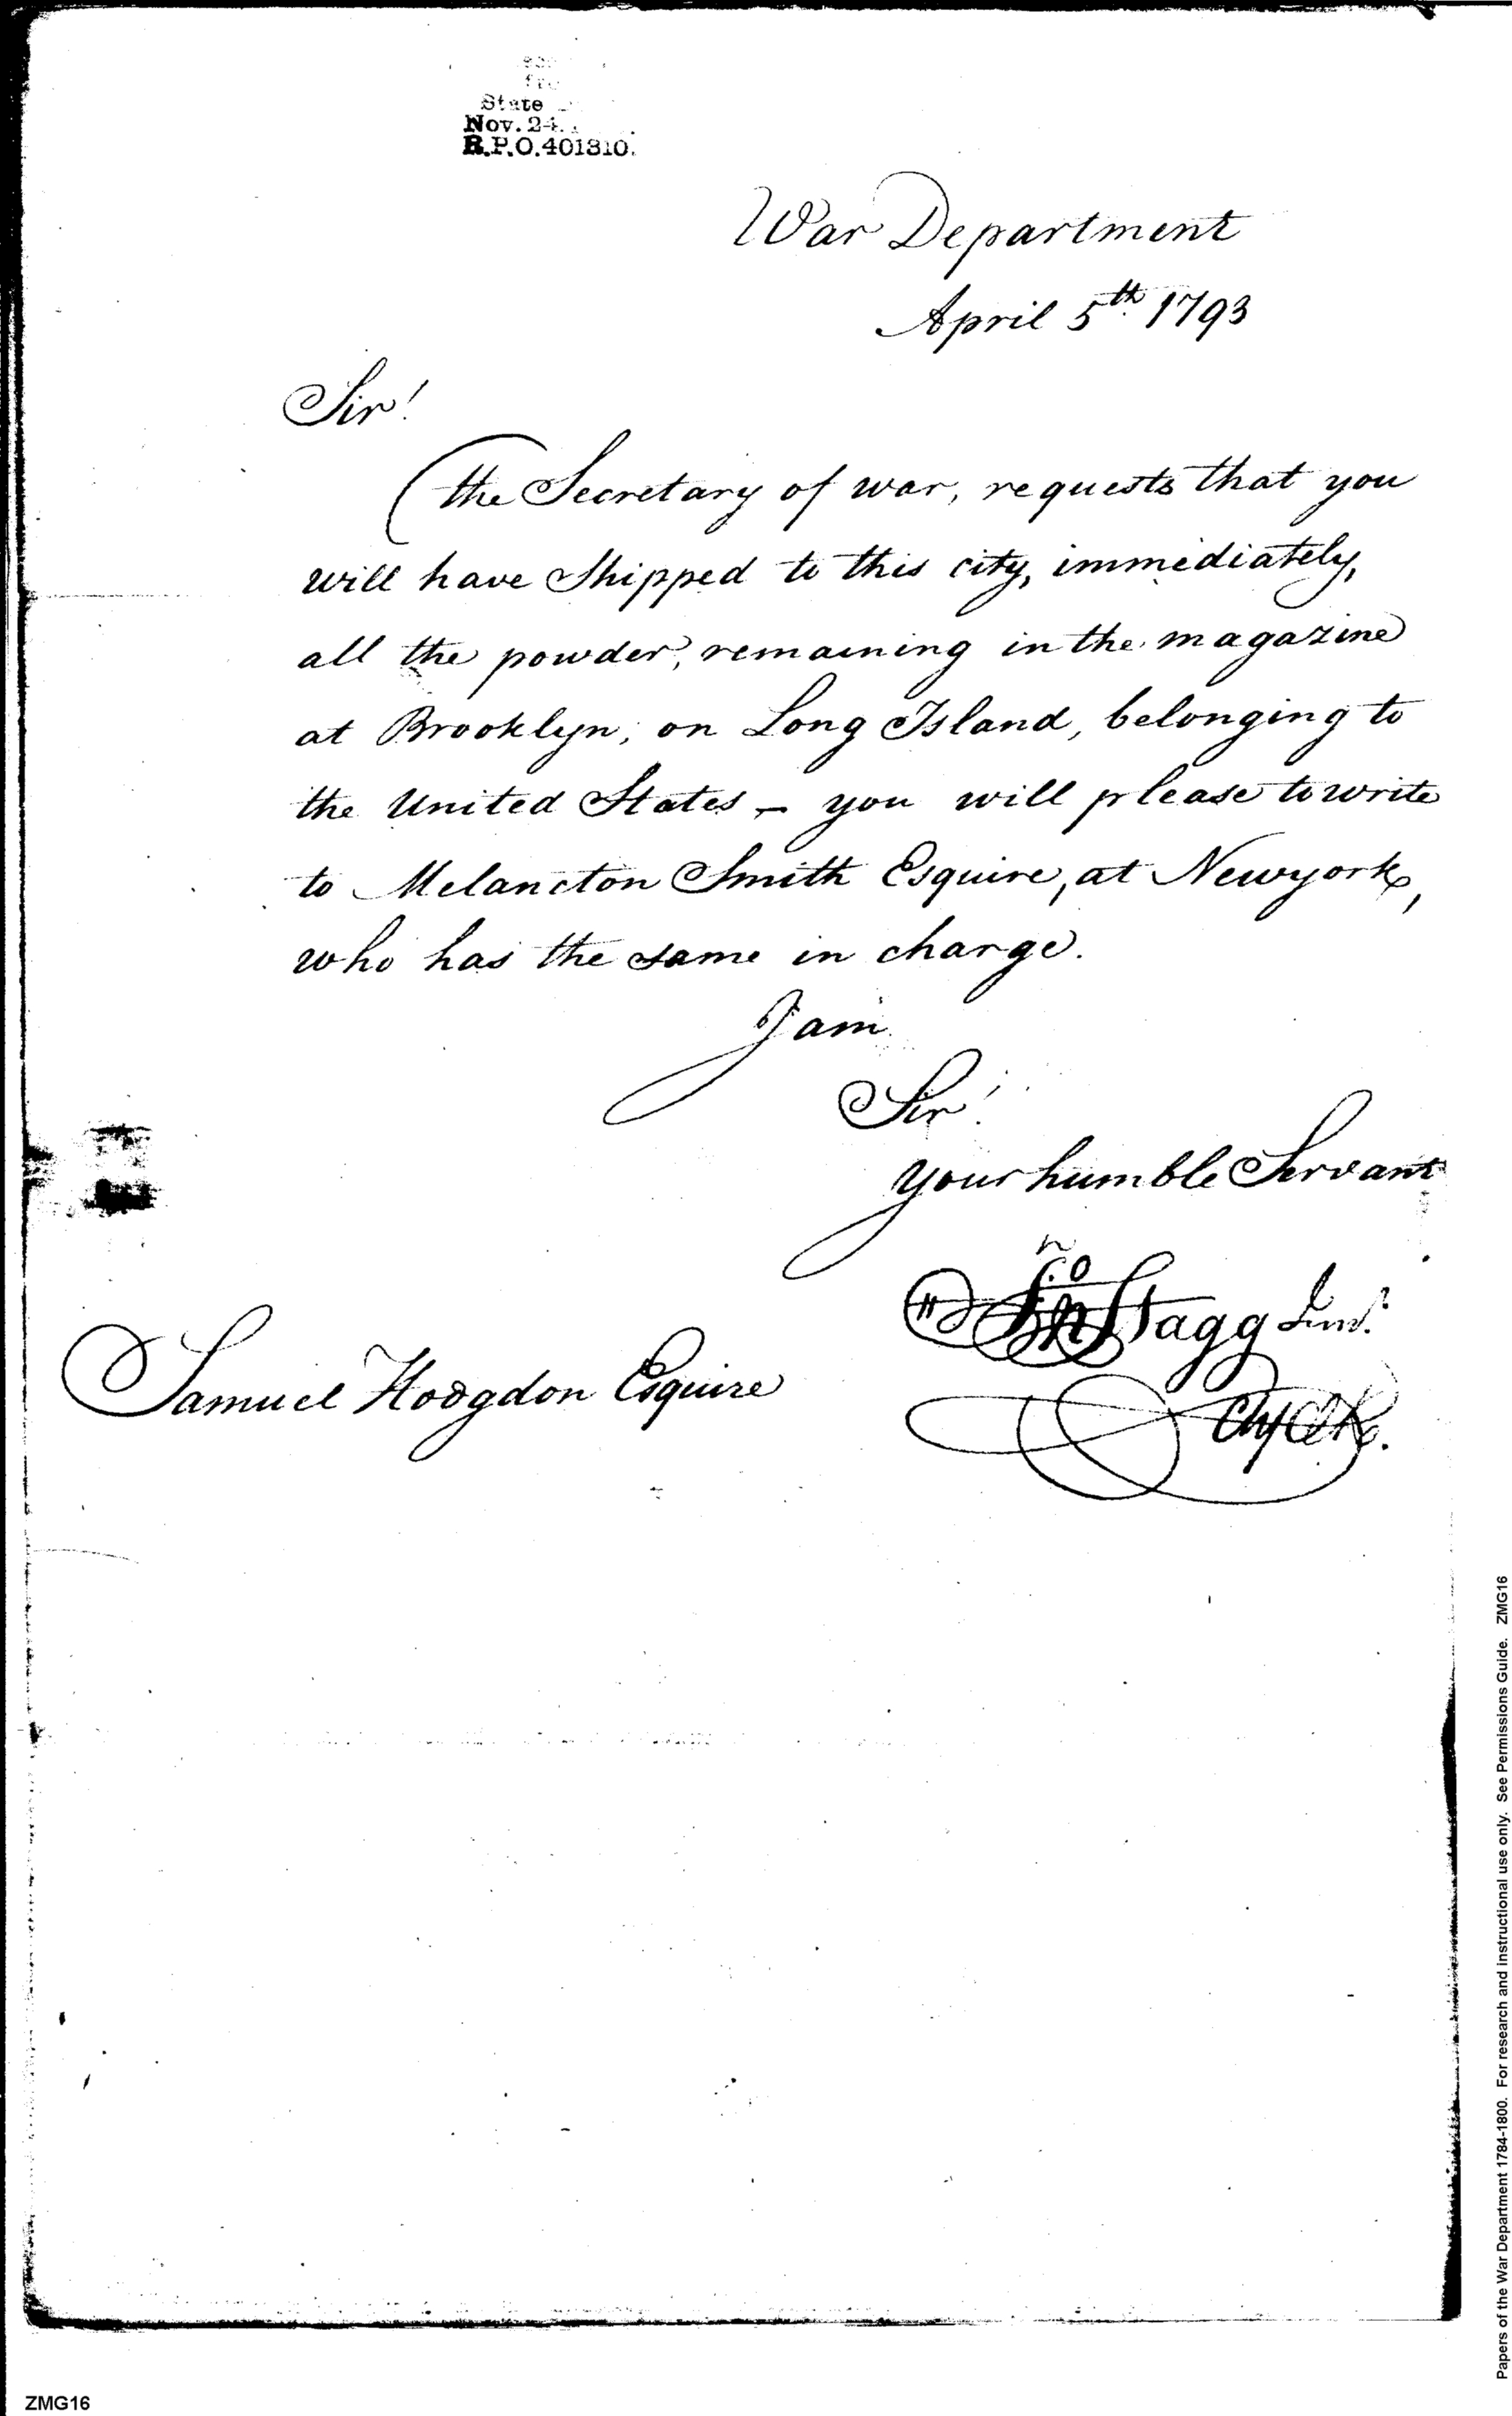 State
Nov. 24.
R.P.O. 401310.
War Department
April 5th 1793
Sir!
The Secretary of war, requests that you
will have Shipped to this city, immediately,
all the powder, remaining in the magazine
at Brooklyn, on Long Island, belonging to
the United States – you will please to write
to Melancton Smith Esquire, at Newyork,
who has the same in charge.
I am
Sir!
your humble Servant
Jno Stagg Junr.
Samuel Hodgdon Esquire
Chf Clk.
Papers of the War Department 1784-1800. For research and instructional use only. See Permissions Guide. ZMG16
ZMG16